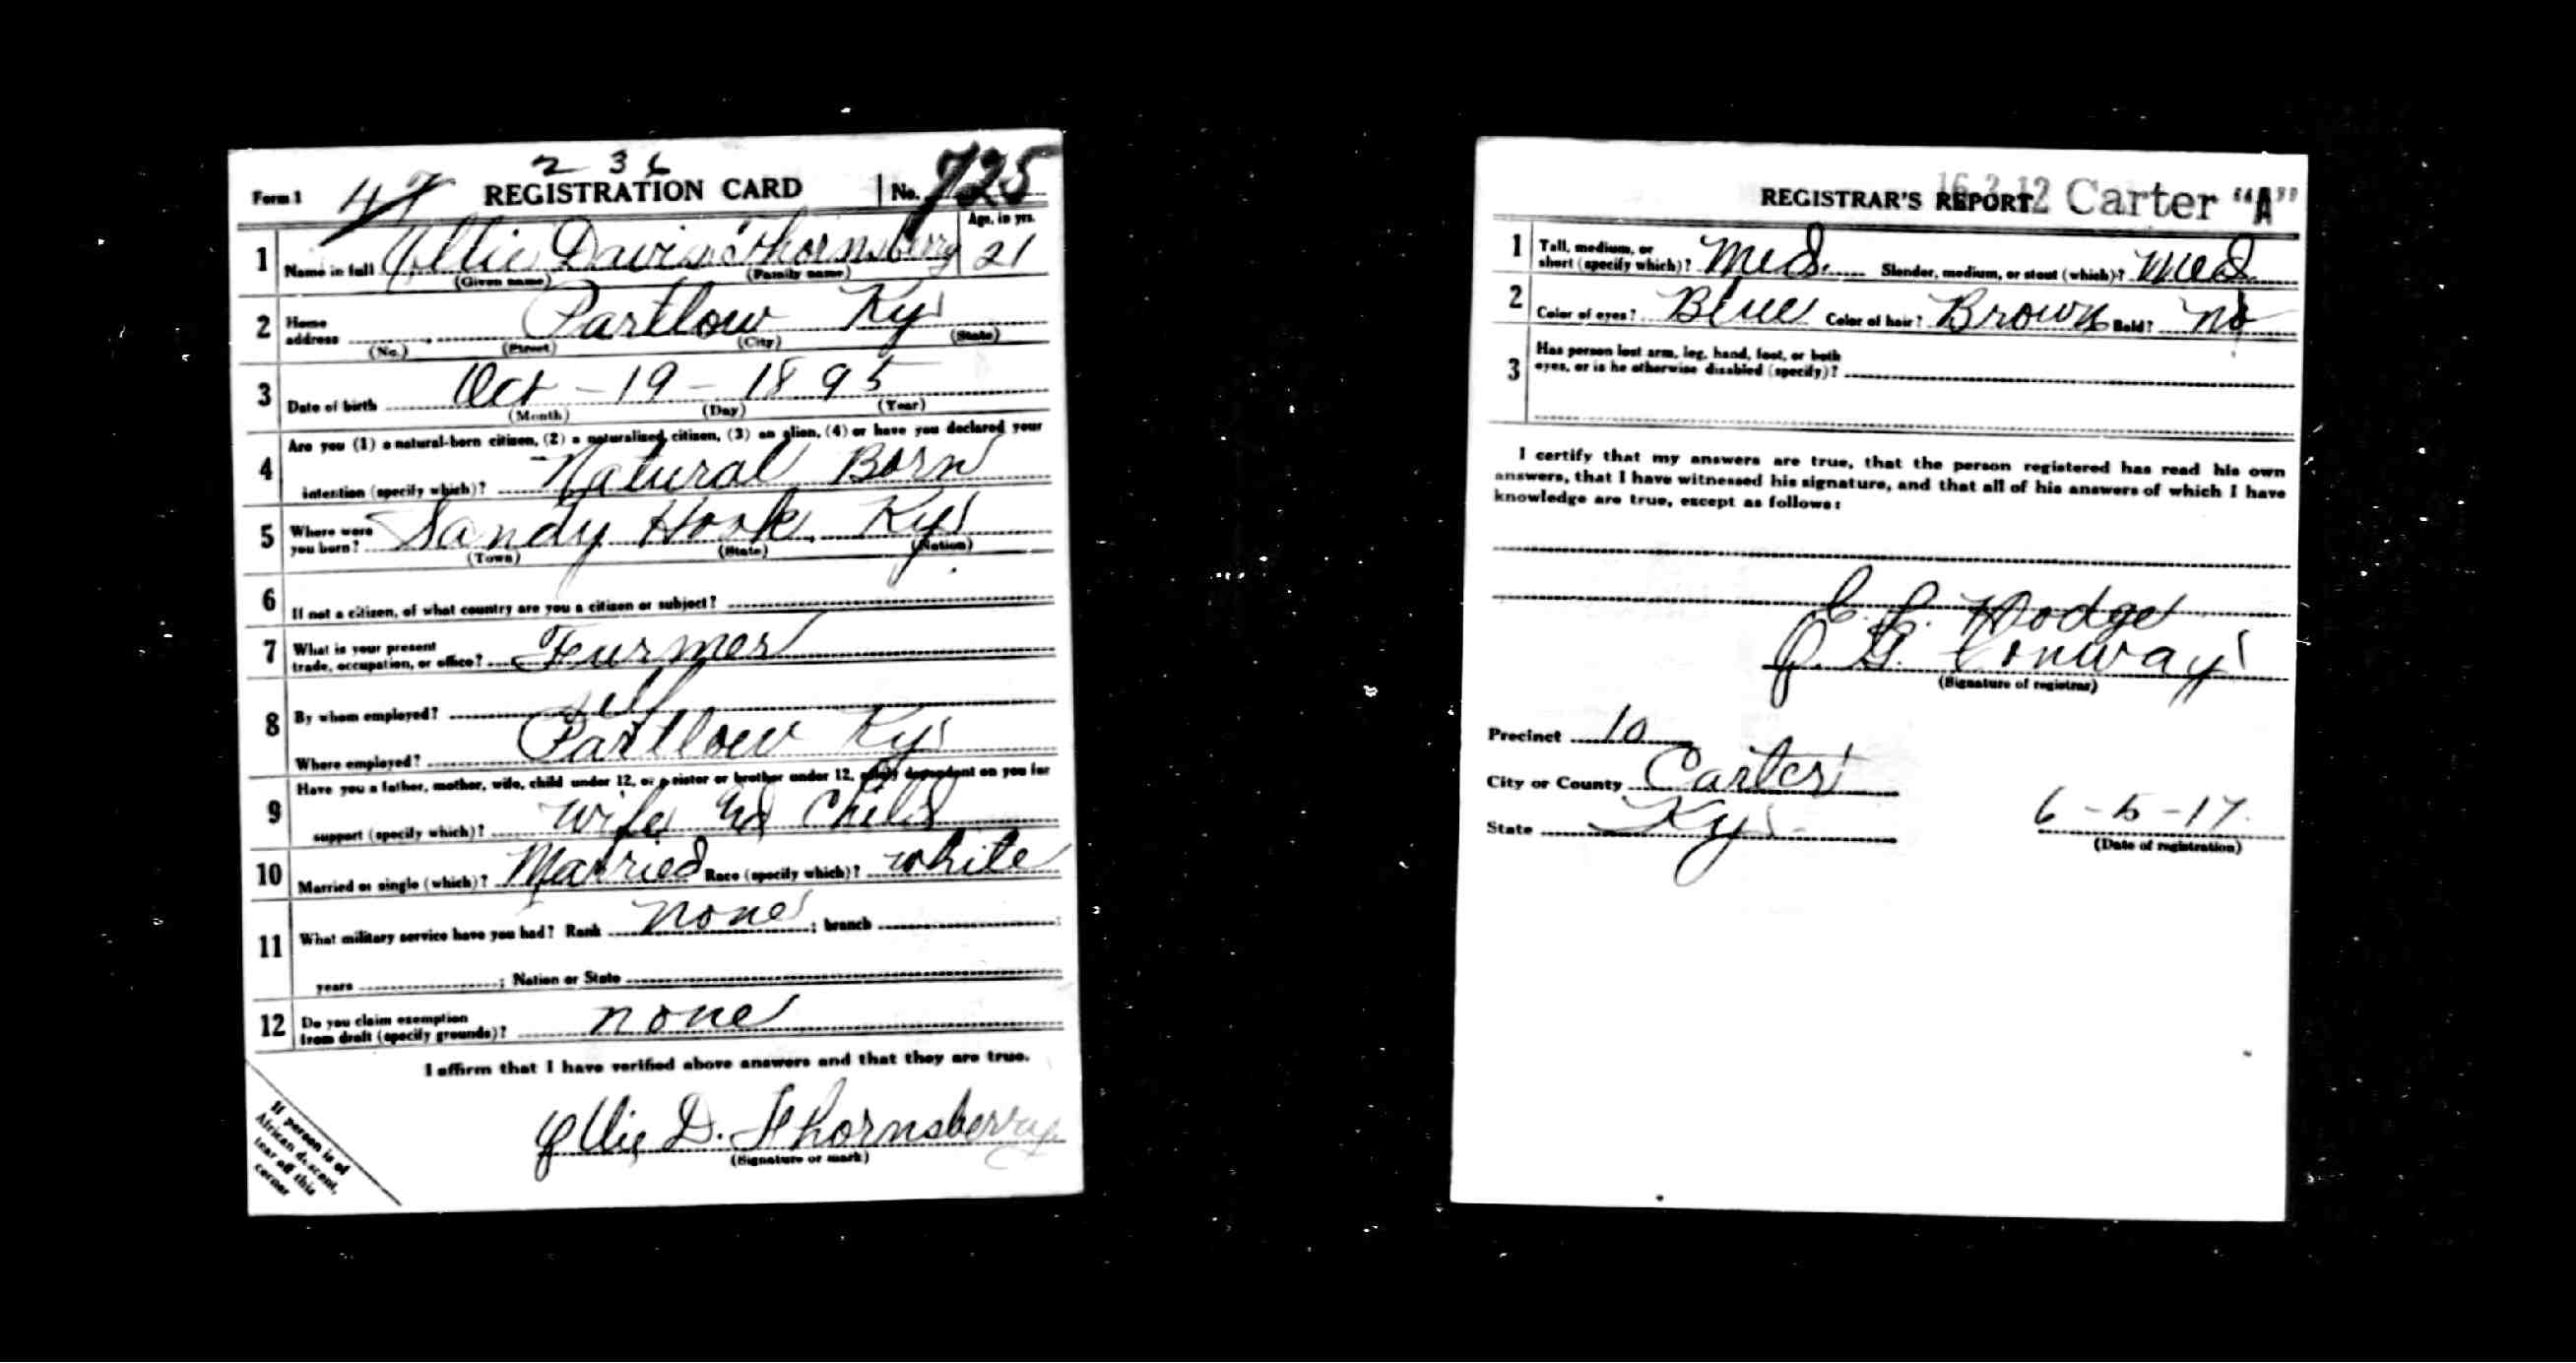 2 3 6
Form 1 47 REGISTRATION CARD No. 725
1 Name in full Ollie Davis Thornsberry Age, in yrs. 21
(Given name) (Family name)
2 Home address Partlow Ky
(No.) (Street) (City) (State)
3 Date of birth Oct - 19 - 1895
(Month) (Day) (Year)
Are you (1) a natural-born citizen, (2) a naturalized citizen, (3) an alien, (4) or have you declared your
4 intention (specify which)? Natural Born
5 Where were you born? Sandy Hook, Ky
(Town) (State) (Nation)
6 If not a citizen, of what country are you a citizen or subject?
7 What is your present trade, occupation, or office? Furmer
8 By whom employed? self
Where employed? Partlow Ky
Have you a father, mother, wife, child under 12, or a sister or brother under 12, solely dependent on you for
9 support (specify which)? wife Child
10 Married or single (which)? Married Race (specify which)? white
11 What military service have you had? Rank none ; branch ;
years ; Nation or State
12 Do you claim exemption from draft (specify grounds)? none
I affirm that I have verified above answers and that they are true.
Ollie D. Thornsberry
(Signature or mark)
If person is of
African descent,
tear off this
corner
REGISTRAR'S REPORT Carter "A"
1 Tall, medium, or short (specify which)? Med. Slender, medium, or stout (which)? Med
2 Color of eyes? Blue Color of hair? Brown Bald? No
3 Has person lost arm, leg, hand, foot, or both
eyes, or is he otherwise disabled (specify)?
I certify that my answers are true, that the person registered has read his own
answers, that I have witnessed his signature, and that all of his answers of which I have
knowledge are true, except as follows:
Hodge
J. G. Conway
(Signature of registrar)
Precinct 10
City or County Carter
State Ky.
6-5-17.
(Date of registration)